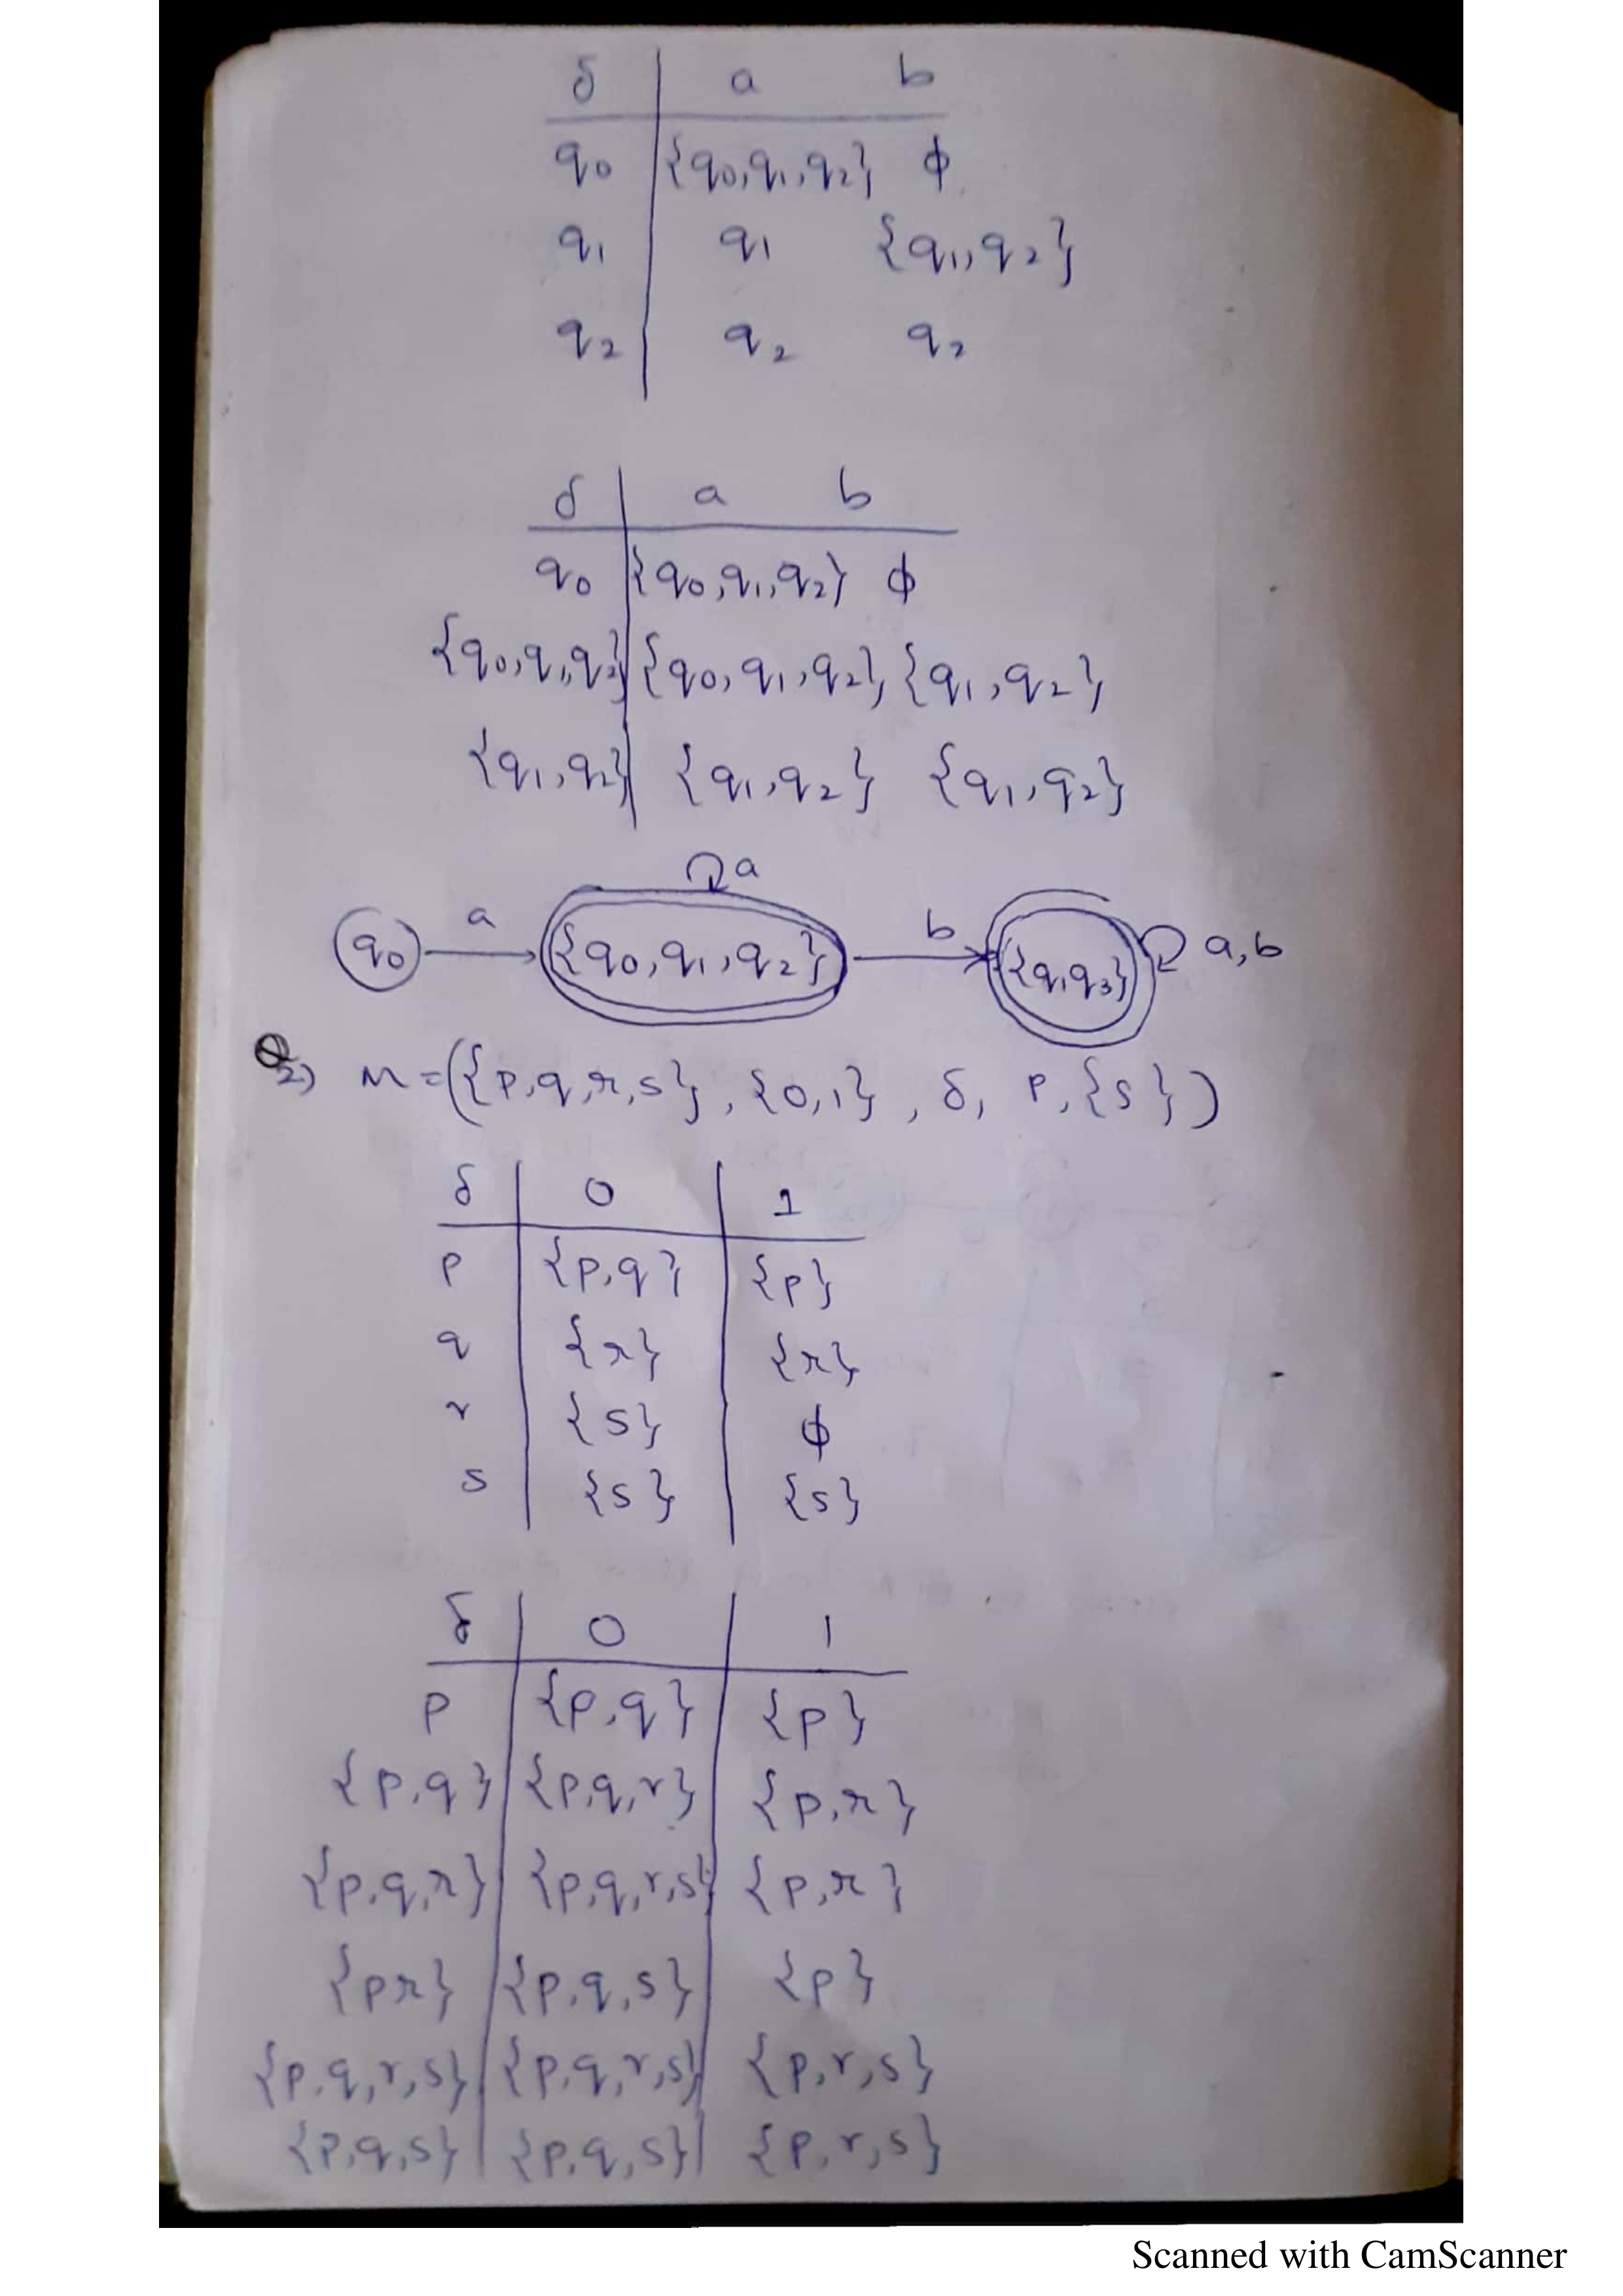 δ a b
q0 {q0,q1,q2} ϕ
q1 q1 {q1,q2}
q2 q2 q2
δ a b
q0 {q0,q1,q2} ϕ
{q0,q1,q2} {q0,q1,q2} {q1,q2}
{q1,q2} {q1,q2} {q1,q2}
a
q0 a {q0,q1,q2} b {q1q3} a,b
Q2) M=({p,q,r,s}, {0,1}, δ, P,{s})
δ 0 1
p {p,q} {p}
q {r} {r}
r {s} ϕ
s {s} {s}
δ 0 1
p {p,q} {p}
{p,q} {p,q,r} {p,r}
{p,q,r} {p,q,r,s} {p,r}
{pr} {p,q,s} {p}
{p,q,r,s} {p,q,r,s} {p,r,s}
{p,q,s} {p,q,s} {p,r,s}
Scanned with CamScanner